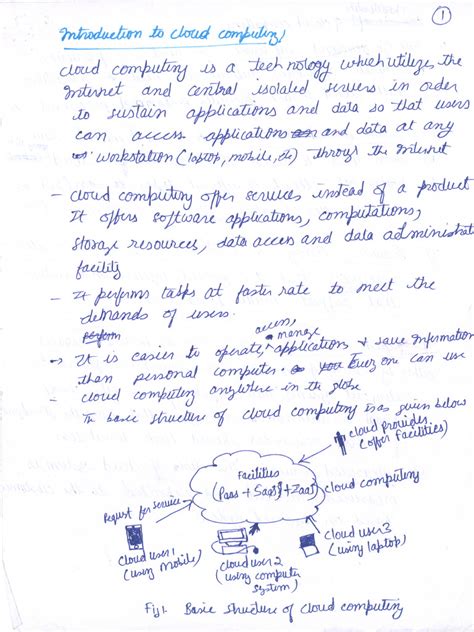 1
Introduction to cloud computing
cloud computing is a technology which utilizes the
Internet and central isolated servers in order
to sustain applications and data so that users
can access applications and data at any
workstation (laptop, mobile, etc) through the Internet
- cloud computing offer services instead of a product
It offers software applications, computations,
storage resources, data acces and data administrate
facility
- It performs tasks at faster rate to meet the
demands of users.
perform
access,
manage
-> It is easier to operate, applications & save information
than personal computer. Every one can use
- cloud computing anywhere in the globe
The basic structure of cloud computing is as given below
cloud provider
(offer facilities)
Facilities
(Paas + SaaS + IaaS)
cloud computing
Request for service
cloud user 1
(using mobile)
cloud user 2
(using computer
system)
cloud user 3
(using laptop)
Fig 1. Basic structure of cloud computing